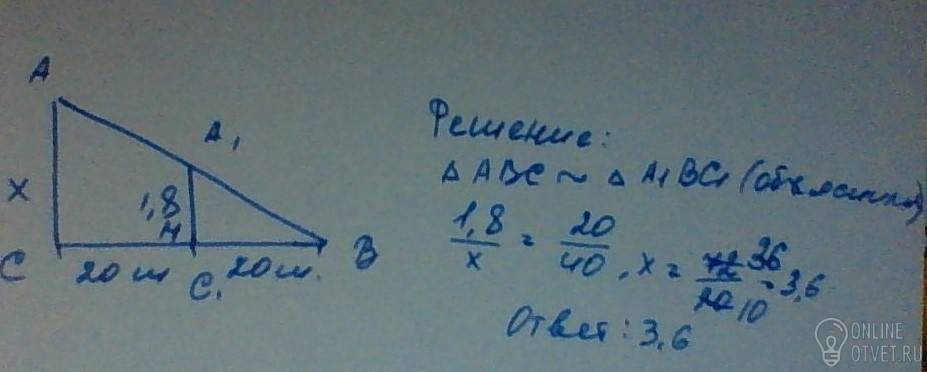 A
A₁
x
1,8
м
C
20 ш
C₁
20 ш.
B
Решение:
△ ABC ~ △ A₁BC₁
1,8/x = 20/40, x = 36/10 = 3,6
Ответ: 3,6
ONLINE
OTVET.RU